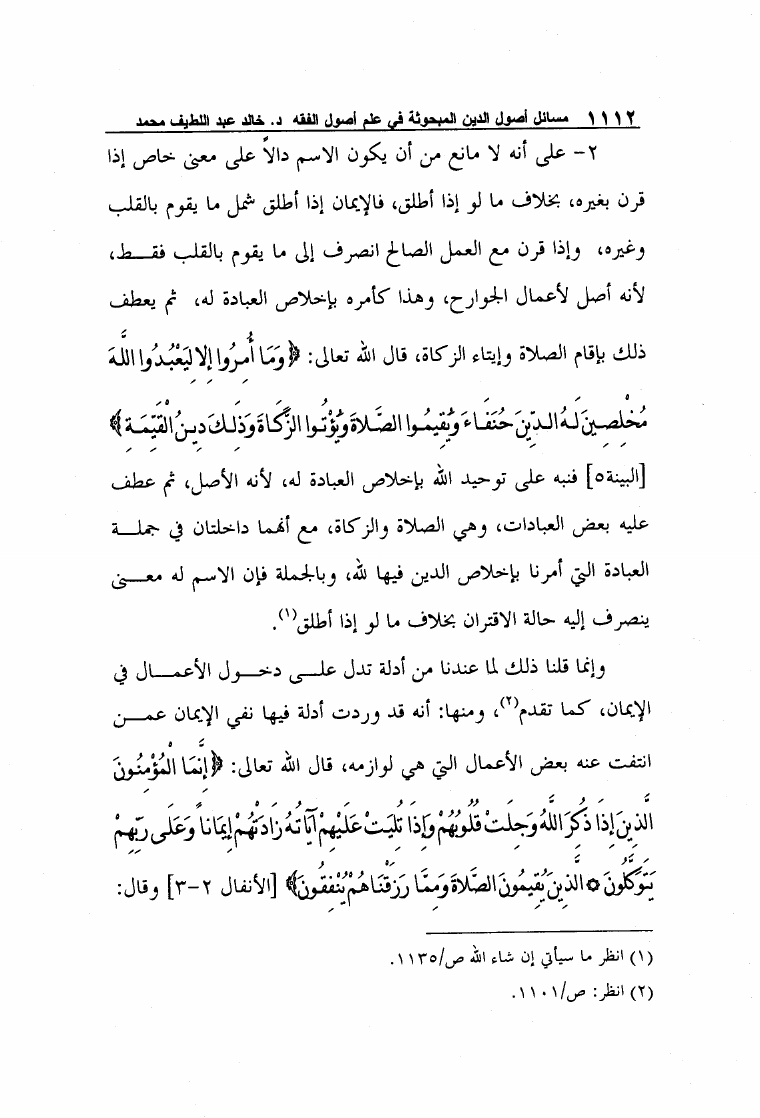 ١١١٢ مسائل أصول الدين المبحوثة في علم أصول الفقه د. خالد عبد اللطيف محمد
٢- على أنه لا مانع من أن يكون الاسم دالاً على معنى خاص إذا
قرن بغيره، بخلاف ما لو إذا أطلق، فالإيمان إذا أطلق شمل ما يقوم بالقلب
وغيره، وإذا قرن مع العمل الصالح انصرف إلى ما يقوم بالقلب فقـــط،
لأنه أصل لأعمال الجوارح، وهذا كأمره بإخلاص العبادة له، ثم يعطف
ذلك بإقام الصلاة وإيتاء الزكاة، قال الله تعالى: ﴿وَمَا أُمِرُوا إِلا لِيَعْبُدُوا اللَّهَ
مُخْلِصِينَ لَهُ الدِّينَ حُنَفَاءَ وَيُقِيمُوا الصَّلاةَ وَيُؤْتُوا الزَّكَاةَ وَذَلِكَ دِينُ الْقَيِّمَةِ﴾
[البينة٥] فنبه على توحيد الله بإخلاص العبادة له، لأنه الأصل، ثم عطف
عليه بعض العبادات، وهي الصلاة والزكاة، مع أنهما داخلتان في جملـــة
العبادة التي أمرنا بإخلاص الدين فيها لله، وبالجملة فإن الاسم له معـــنى
ينصرف إليه حالة الاقتران بخلاف ما لو إذا أطلق(١).
وإنما قلنا ذلك لما عندنا من أدلة تدل علـــى دخـــول الأعمـــال في
الإيمان، كما تقدم(٢)، ومنها: أنه قد وردت أدلة فيها نفي الإيمان عمـــن
انتفت عنه بعض الأعمال التي هي لوازمه، قال الله تعالى: ﴿إِنَّمَا الْمُؤْمِنُونَ
الَّذِينَ إِذَا ذُكِرَ اللَّهُ وَجِلَتْ قُلُوبُهُمْ وَإِذَا تُلِيَتْ عَلَيْهِمْ آيَاتُهُ زَادَتْهُمْ إِيمَاناً وَعَلَى رَبِّهِمْ
يَتَوَكَّلُونَ ۞ الَّذِينَ يُقِيمُونَ الصَّلاةَ وَمِمَّا رَزَقْنَاهُمْ يُنْفِقُونَ﴾ [الأنفال ٢-٣] وقال:
(١) انظر ما سيأتي إن شاء الله ص/١١٣٥.
(٢) انظر: ص/١١٠١.